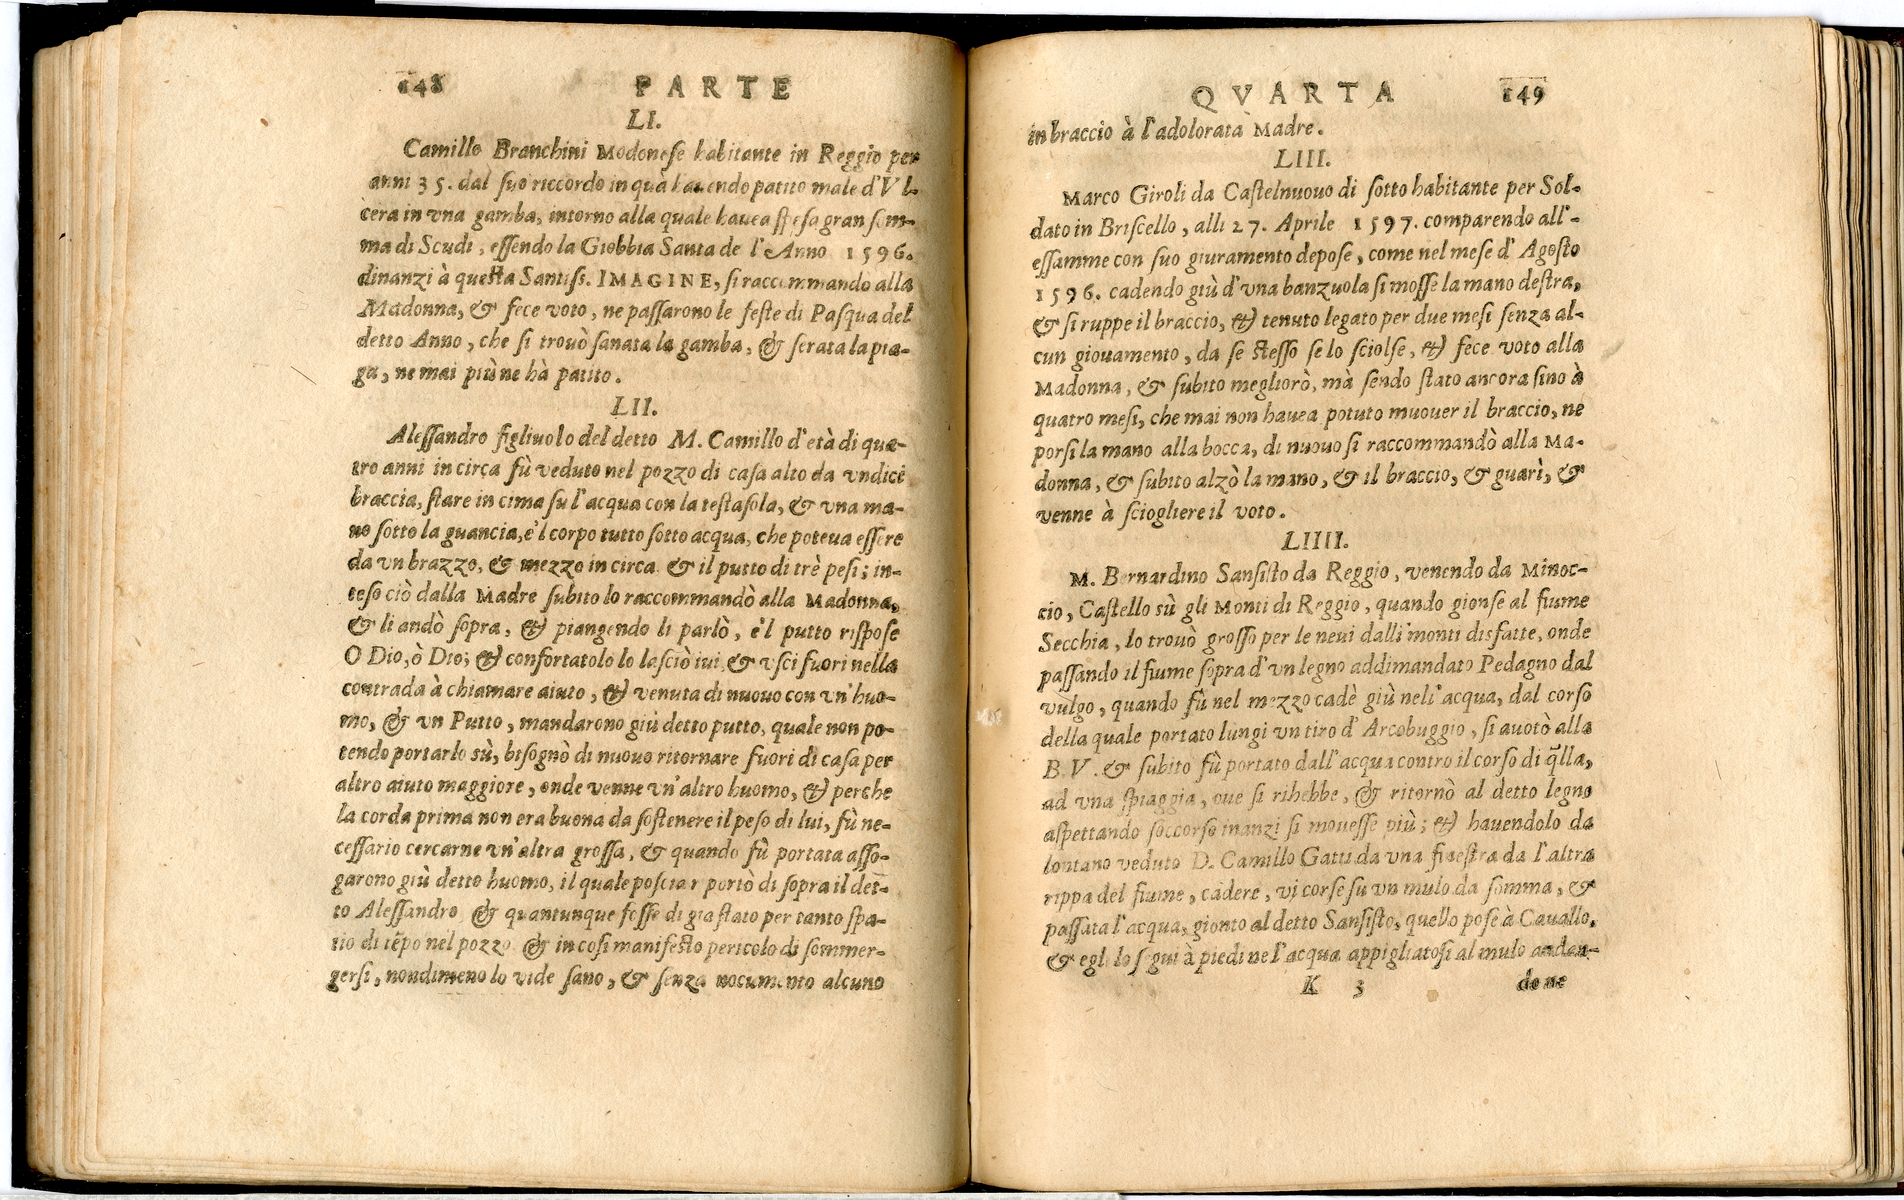 148 PARTE
LI.
Camillo Branchini Modonese habitante in Reggio per
anni 35. dal suo riccordo in quà hauendo patito male d'Vl-
cera in vna gamba, intorno alla quale hauea spesa gran som-
ma di Scudi, essendo la Giobbia Santa de l'Anno 1596.
dinanzi à questa Santiss. IMAGINE, si raccommando alla
Madonna, & fece voto, ne passarono le feste di Pasqua del
detto Anno, che si trouò sanata la gamba, & serata la pia-
ga, ne mai più ne hà patito.
LII.
Alessandro figliuolo del detto M. Camillo d'età di qua-
tro anni in circa fù veduto nel pozzo di casa alto da vndici
braccia, stare in cima su l'acqua con la testa sola, & vna ma-
no sotto la guancia, e'l corpo tutto sotto acqua, che poteua essere
da vn brazzo, & mezzo in circa & il putto di trè pesi; in-
teso ciò dalla Madre subito lo raccommandò alla Madonna,
& li andò sopra, & piangendo li parlò, e'l putto rispose
O Dio, ò Dio; & confortatolo lo lasciò iui & vsci fuori nella
contrada à chiamare aiuto, & venuta di nuouo con vn'huo-
mo, & vn Putto, mandarono giù detto putto, quale non po-
tendo portarlo sù, bisognò di nuouo ritornare fuori di casa per
altro aiuto maggiore, onde venne vn'altro huomo, & perche
la corda prima non era buona da sostenere il peso di lui, fù ne-
cessario cercarne vn'altra grossa, & quando fù portata asso-
garono giù detto huomo, il quale poscia riportò di sopra il det-
to Alessandro & quantunque fosse di gia stato per tanto spa-
tio di tēpo nel pozzo & in cosi manifesto pericolo di sommer-
gersi, nondimeno lo vide sano, & senza nocumento alcuno
QVARTA 149
in braccio à l'adolorata Madre.
LIII.
Marco Giroli da Castelnuouo di sotto habitante per Sol-
dato in Briscello, alli 27. Aprile 1597. comparendo all'-
essamme con suo giuramento depose, come nel mese d'Agosto
1596. cadendo giù d'vna banzuola si mosse la mano destra,
& si ruppe il braccio, & tenuto legato per due mesi senza al-
cun giouamento, da se stesso se lo sciolse, & fece voto alla
Madonna, & subito megliorò, mà sendo stato ancora sino à
quatro mesi, che mai non hauea potuto muouer il braccio, ne
porsi la mano alla bocca, di nuouo si raccommandò alla Ma-
donna, & subito alzò la mano, & il braccio, & guarì, &
venne à sciogliere il voto.
LIIII.
M. Bernardino Sansisto da Reggio, venendo da Minoc-
cio, Castello sù gli Monti di Reggio, quando gionse al fiume
Secchia, lo trouò grosso per le neui dalli monti disfatte, onde
passando il fiume sopra d'vn legno addimandato Pedagno dal
vulgo, quando fù nel mezzo cadè giù nell'acqua, dal corso
della quale portato lungi vn tiro d'Arcobuggio, si auotò alla
B. V. & subito fù portato dall'acqua contro il corso di q̄lla,
ad vna spiaggia, oue si rihebbe, & ritornò al detto legno
aspettando soccorso inanzi si mouesse più; & hauendolo da
lontano veduto D. Camillo Gatti da vna finestra da l'altra
rippa del fiume, cadere, vi corse su vn mulo da somma, &
passata l'acqua, gionto al detto Sansisto, quello pose à Cauallo,
& egli lo seguì à piedi nel'acqua appigliatosi al mulo andan-
K 3 done